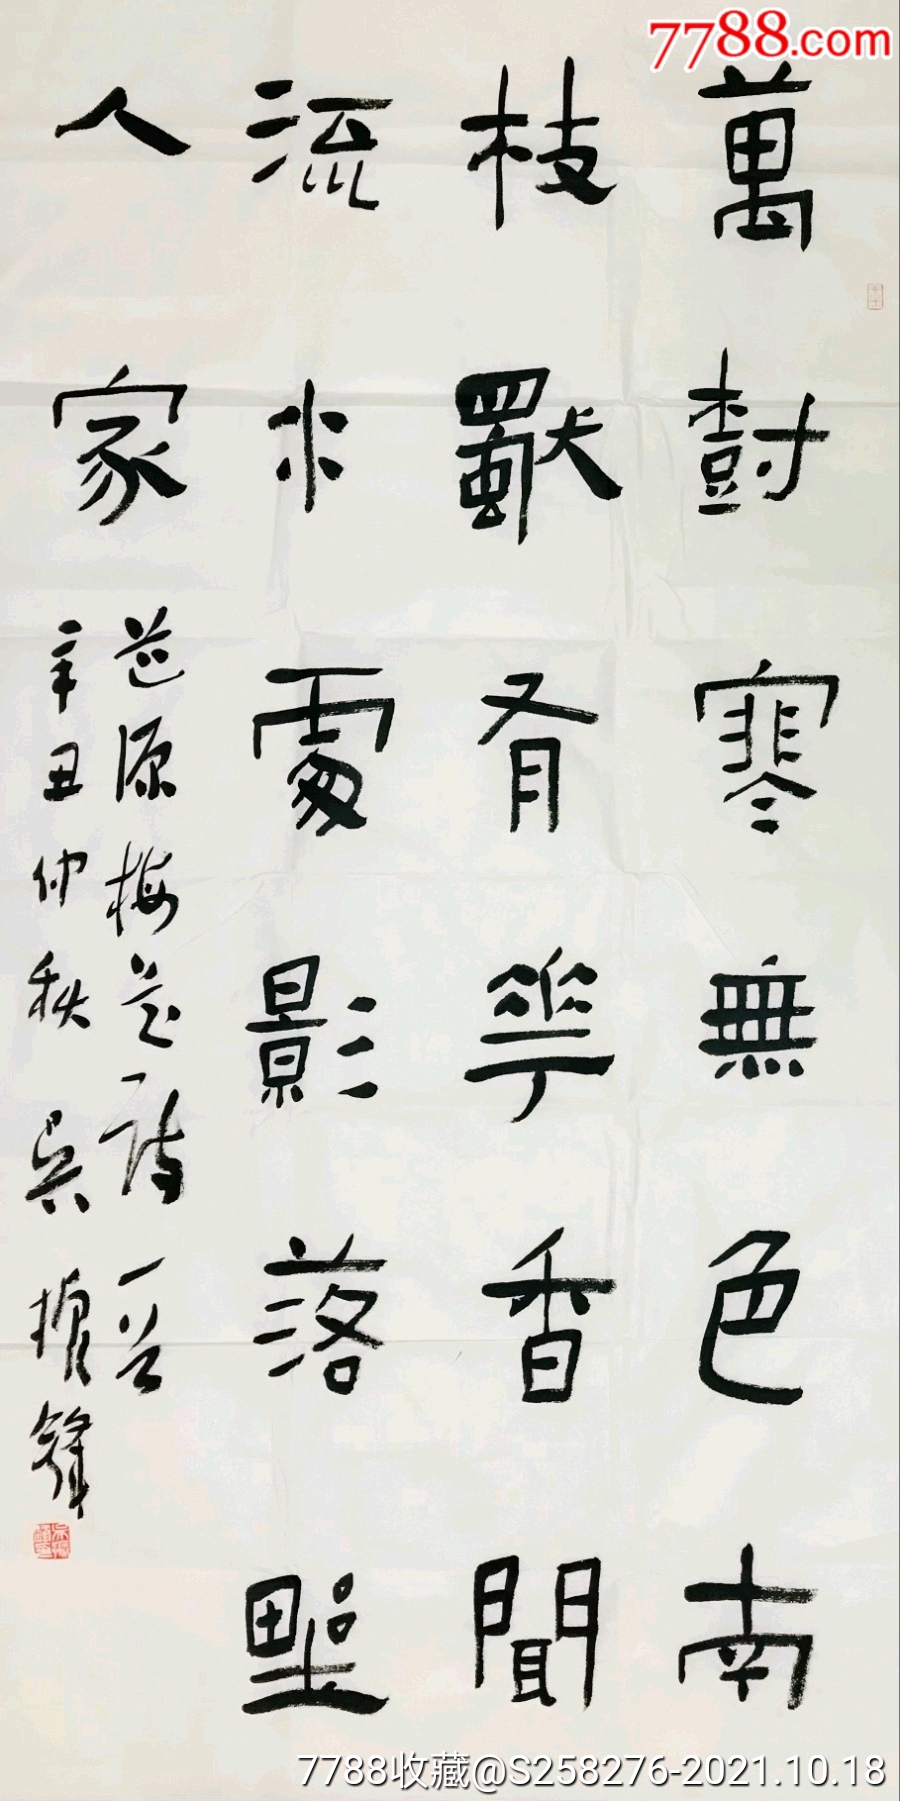 7788.com
萬樹寒無色南
枝獨有花香聞
流水處影落野
人家
道源梅花詩一首
辛丑仲秋 吳振鋒
7788收藏@S258276-2021.10.18